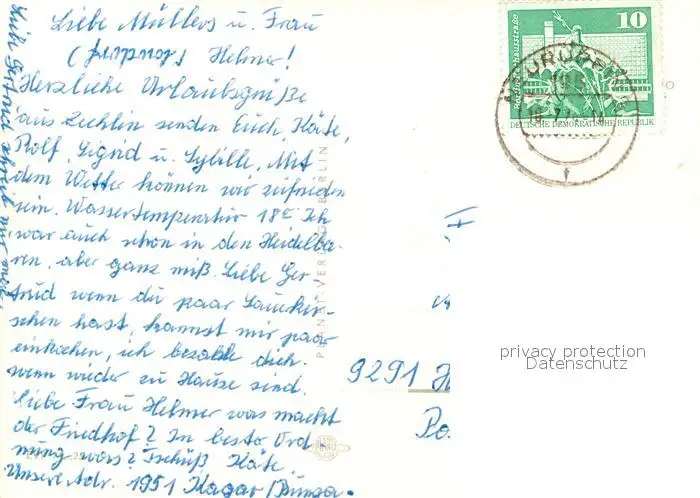 Liebe Müllers u. Frau
Helmer!
Herzliche Urlaubsgrüße
aus Zechlin senden Euch, Käte,
Rolf, Sigrid u. Sybille. Mit
dem Wetter können wir zufrieden
sein. Wassertemperatur 18° Ich
war auch schon in den Heidelbee-
ren, aber ganz miß. Liebe Ger-
trud wenn du paar Sauerkir-
schen hast, kannst mir paar
einkochen, ich bezahle dich.
wenn wieder zu Hause send.
Liebe Frau Helmer was macht
der Friedhof? In bester Ord
nung was? Tschüß Käte.
Unsere Adr. 1951 Kagar
9291
10
DEUTSCHE DEMOKRATISCHE REPUBLIK
PLANET VERLAG BERLIN
privacy protection
Datenschutz